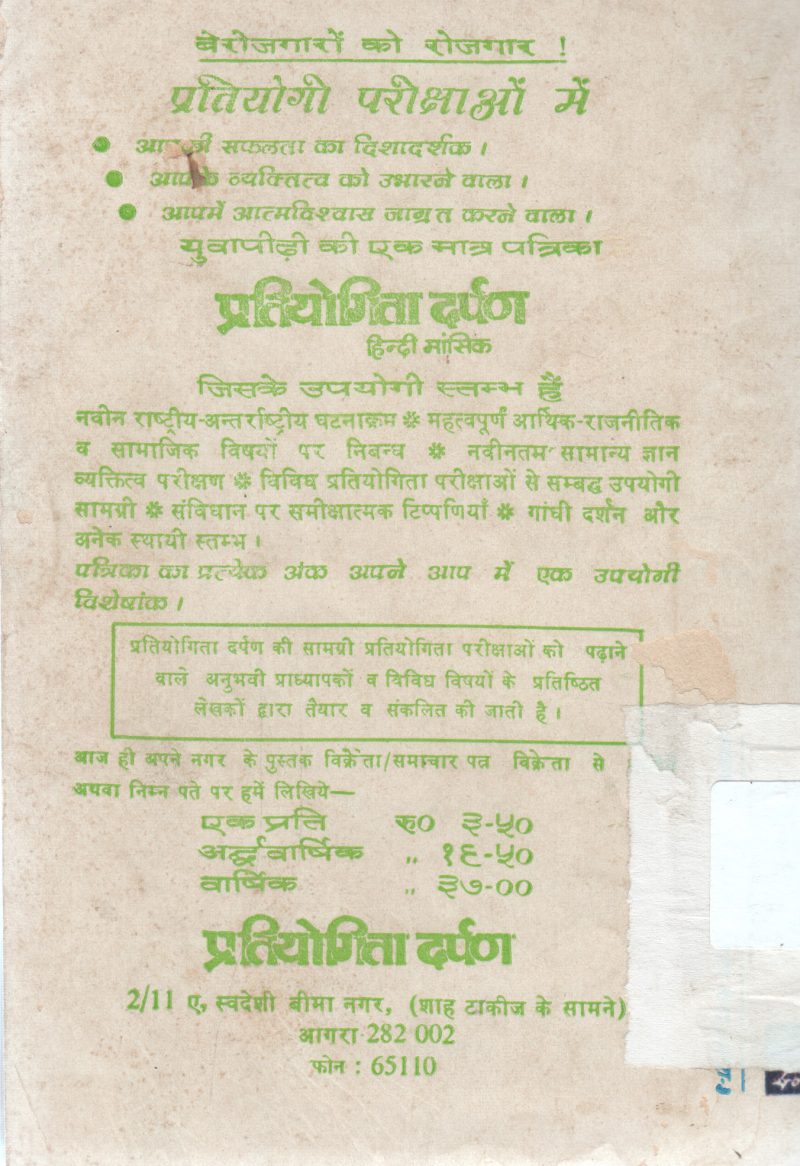 बेरोजगारों को रोजगार !
प्रतियोगी परीक्षाओं में
● आपकी सफलता का दिशादर्शक ।
● आपके व्यक्तित्व को उभारने वाला ।
● आपमें आत्मविश्वास जाग्रत करने वाला ।
युवापीढ़ी की एक मात्र पत्रिका
प्रतियोगिता दर्पण
हिन्दी मांसिक
जिसके उपयोगी स्तम्भ हैं
नवीन राष्ट्रीय-अन्तर्राष्ट्रीय घटनाक्रम ❉ महत्वपूर्ण आर्थिक-राजनीतिक
व सामाजिक विषयों पर निबन्ध ❉ नवीनतम सामान्य ज्ञान
व्यक्तित्व परीक्षण ❉ विविध प्रतियोगिता परीक्षाओं से सम्बद्ध उपयोगी
सामग्री ❉ संविधान पर समीक्षात्मक टिप्पणियाँ ❉ गांधी दर्शन और
अनेक स्थायी स्तम्भ ।
पत्रिका का प्रत्येक अंक अपने आप में एक उपयोगी
विशेषांक ।
प्रतियोगिता दर्पण की सामग्री प्रतियोगिता परीक्षाओं को पढ़ाने
वाले अनुभवी प्राध्यापकों व विविध विषयों के प्रतिष्ठित
लेखकों द्वारा तैयार व संकलित की जाती है ।
आज ही अपने नगर के पुस्तक विक्रेता/समाचार पत्र विक्रेता से
अथवा निम्न पते पर हमें लिखिये—
एक प्रति रु० ३-५०
अर्द्धवार्षिक ,, १९-५०
वार्षिक ,, ३७-००
प्रतियोगिता दर्पण
2/11 ए, स्वदेशी बीमा नगर, (शाह टाकीज के सामने)
आगरा 282 002
फोन : 65110